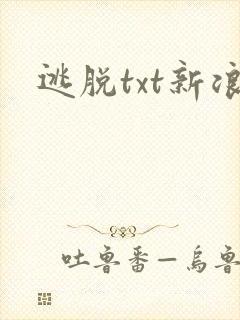 逃脱txt新浪
吐鲁番—乌鲁